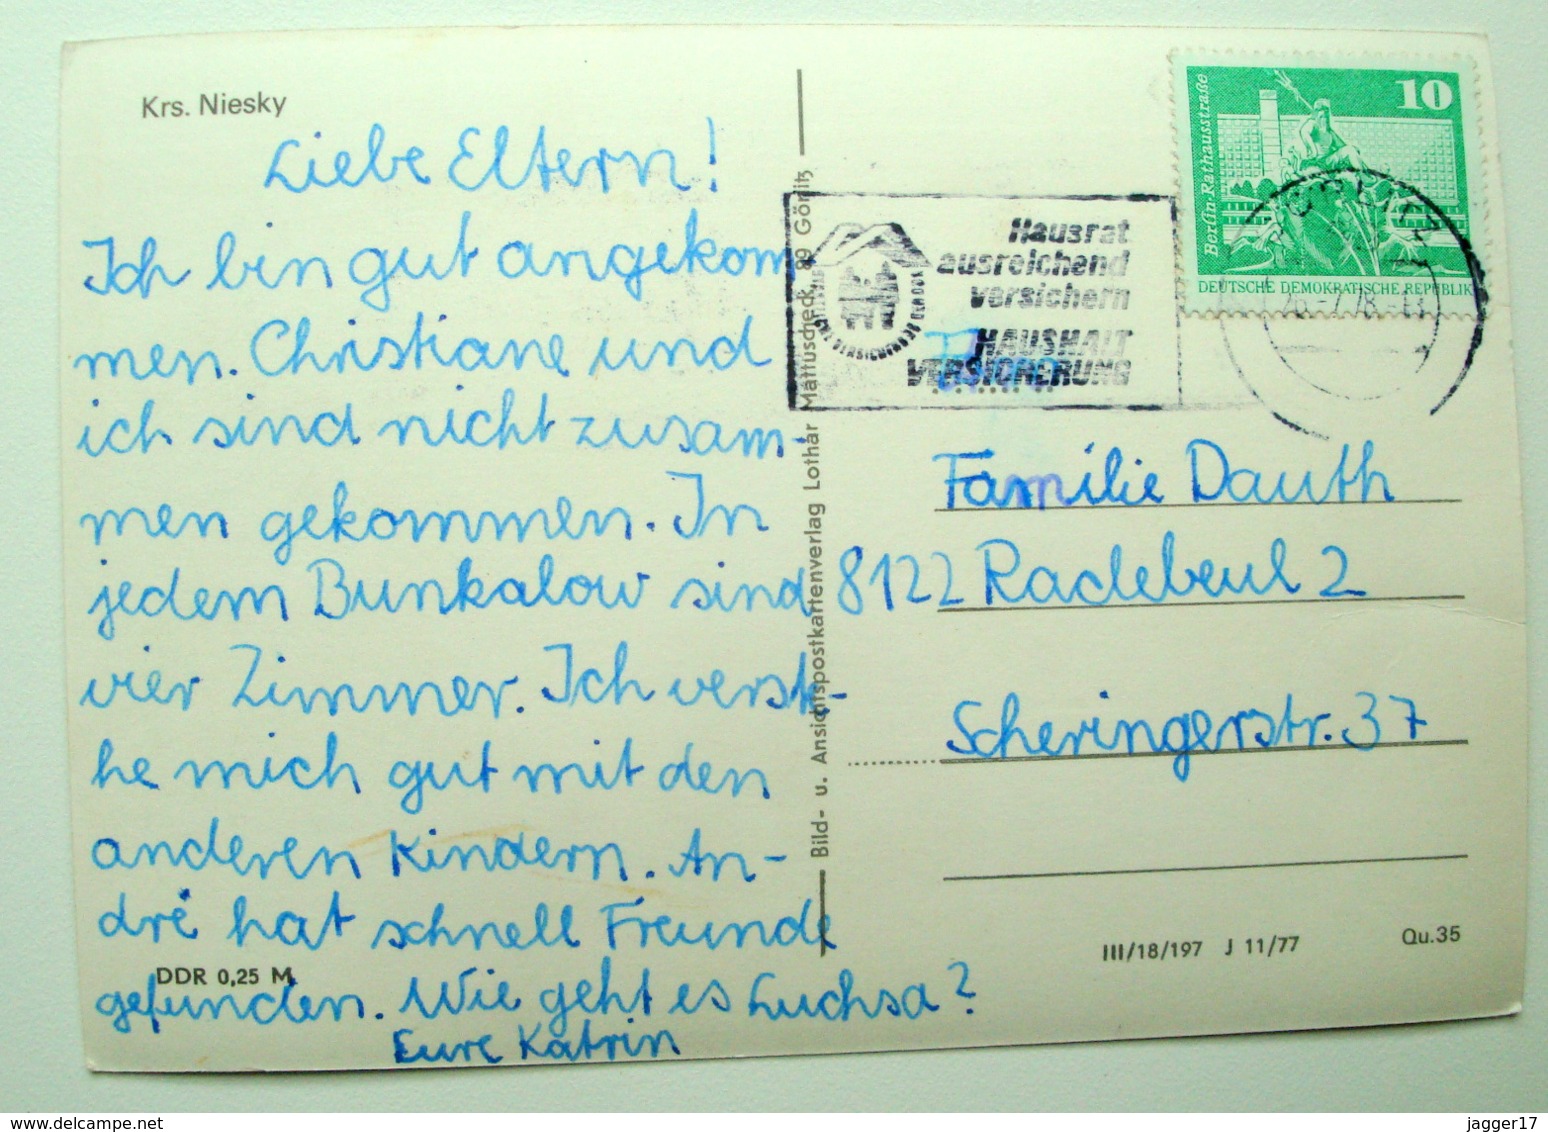 Krs. Niesky
Liebe Eltern!
Ich bin gut angekom
men. Christiane und
ich sind nicht zusam-
men gekommen. In
jedem Bunkalow sind
vier Zimmer. Ich verste-
he mich gut mit den
anderen Kindern. An-
dré hat schnell Freunde
gefunden. Wie geht es Luchsa?
Eure Katrin
DDR 0,25 M
Bild- u. Ansichtspostkartenverlag Lothar Mattuscheck, 89 Görlitz
Hausrat
ausreichend
versichern
HAUSHALT
VERSICHERUNG
10
Berlin-Rathausstraße
DEUTSCHE DEMOKRATISCHE REPUBLIK
GÖRLITZ
Familie Dauth
8122 Radebeul 2
Scheringerstr. 37
III/18/197 J 11/77
Qu.35
www.delcampe.net
jagger17